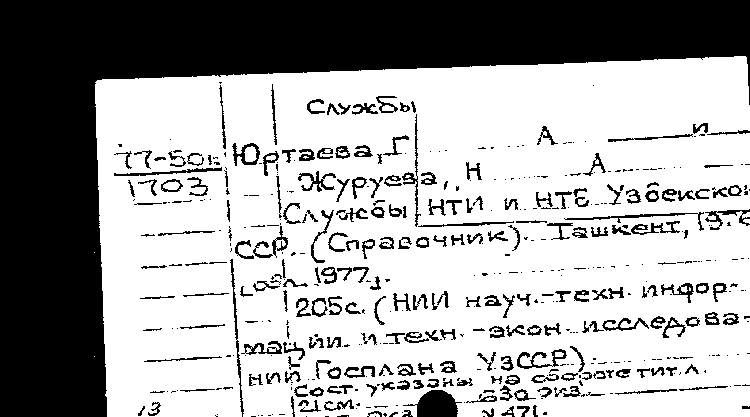 Службы
77-50к Юртаева, Г А и
1703 Журуева, Н А
Службы НТИ и НТЕ Узбекской
ССР. (Справочник). Ташкент, 1976
1977.
205с. (НИИ науч.-техн. инфор-
мации и техн.-экон. исследова-
ний Госплана УзССР).
Сост. указаны на обороте тит. л.
21см. 230 экз.
13 471.